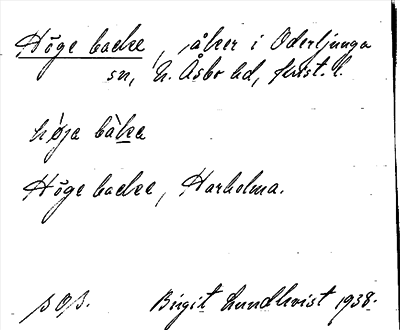 Höge backe, åker i Oderljunga
sn, N. Åsbo hd, Krist. l.
höja bàka
Höge backe, Harholma.
s o/s. Birgit Lundkvist 1938.